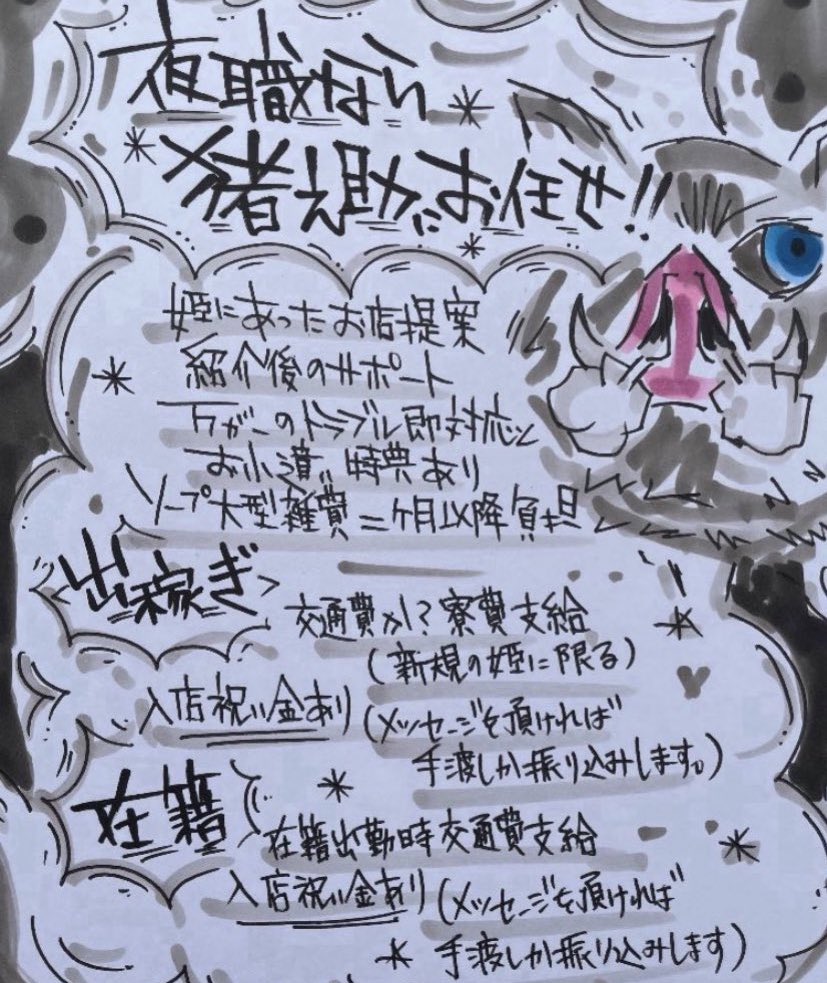 夜職なら
猪之助にお任せ!!
姫にあったお店提案
紹介後のサポート
万が一のトラブル即対応と
お小遣い特典あり
ソープ大型雑費二ヶ月以降負担
出稼ぎ
交通費か!?寮費支給
(新規の姫に限る)
入店祝い金あり(メッセージを頂ければ
手渡しか振り込みします。)
在籍
在籍出勤時交通費支給
入店祝い金あり(メッセージを頂ければ
手渡しか振り込みします)